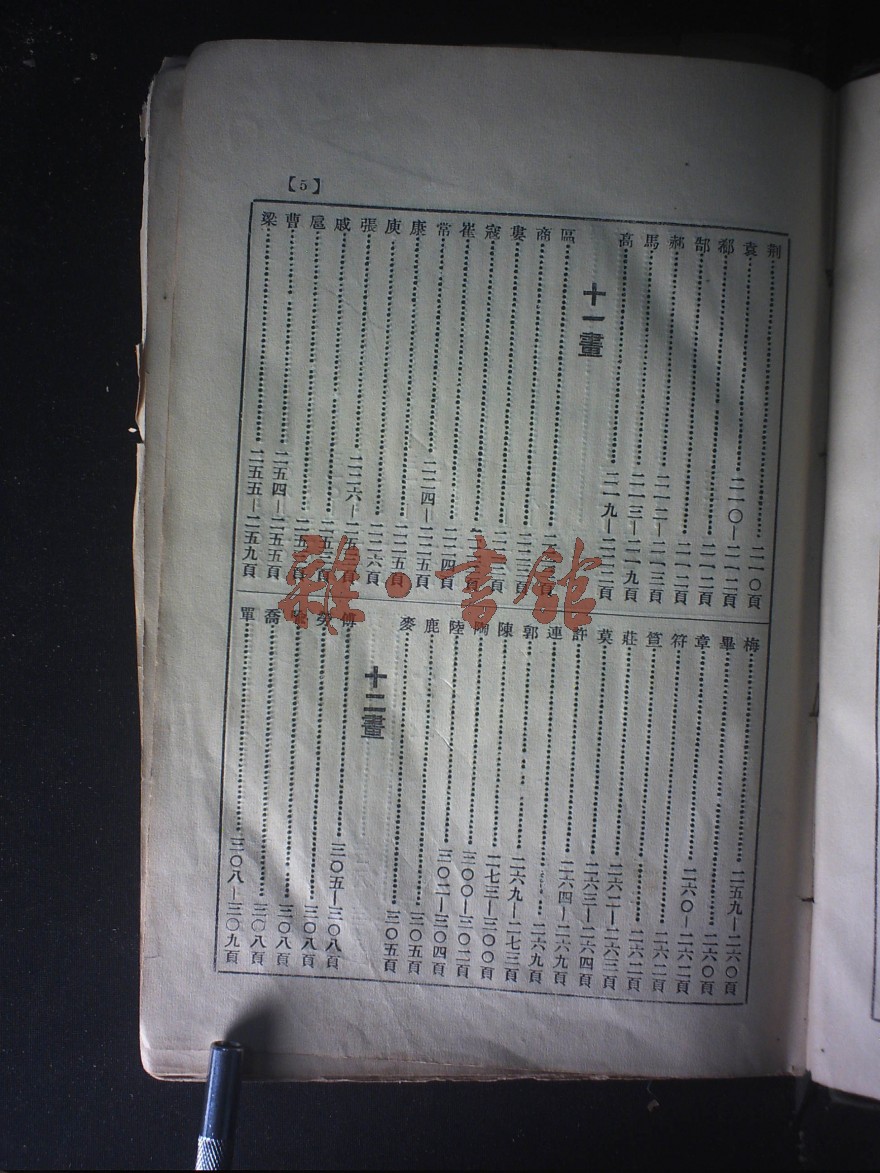 【5】
荊……二一〇頁
袁……二一〇—二一二頁
郗……二一二頁
郜……二一二頁
郝……二一二—二一三頁
馬……二一三—二一九頁
高……二一九—二二二頁
十一畫
區
商
婁……二二三頁
寇
崔
常……二二四頁
康……二二四—二二五頁
庾……二二五頁
張……二二六—二五三頁
戚……二五三頁
扈
曹……二五四—二五五頁
梁……二五五—二五九頁
梅……二五九—二六〇頁
畢……二六〇頁
章……二六〇—二六二頁
符……二六二頁
笪……二六二頁
莊……二六二—二六三頁
莫……二六三—二六四頁
許……二六四—二六九頁
連……二六九頁
郭……二六九—二七三頁
陳……二七三—三〇〇頁
陶……三〇〇—三〇二頁
陸……三〇二—三〇四頁
鹿……三〇五頁
麥……三〇五頁
十二畫
傅……三〇五—三〇八頁
勞……三〇八頁
三〇八頁
喬……三〇八頁
單……三〇八—三〇九頁
雜·書館